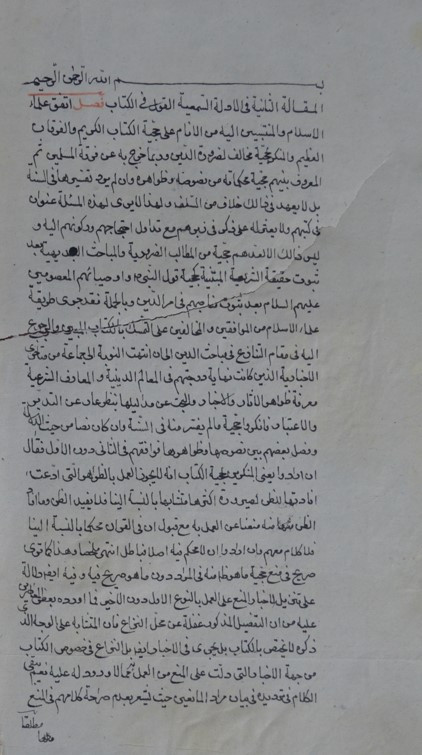 بسم الله الرحمن الرحيم
المقالة الثانية في الادلة السمعية القول في الكتاب فصل اتفق علماء
الاسلام والمنتسبين اليه من الانام على حجية الكتاب الكريم والفرقان
العظيم والمنكر لحجيته مخالف لضرورة الدين وربما خرج به عن فرقة المسلمين ثم
المعروف بينهم حجية محكماته من نصوصه وظواهره وان لم يرد تفسيرها في السنة
بل لا يعهد في ذلك خلاف من السلف ولهذا لا يرى لهذه المسئلة عنوان
في كتبهم ولا
ليس ذلك الا لعدهم حجيته من المطالب الضرورية والمباحث البديهية بعد
ثبوت حقيقة الشريعة كحجية قول النبي واوصيائهم المعصومين
عليهم السلام بعد ثبوت في امر الدين وبالجملة فقد جرى طريقة
علماء الاسلام من الموافقين والمخالفين على التمسك بالكتاب المبين والرجوع
اليه في مقام التنازع في مباحث الدين الى ان انتهت النوبة الى جماعة من متأخري
الاخبارية الذين كانت نهاية درجتهم في المعالم الدينية والمعارف الشرعية
معرفة ظواهر الآثار والاخبار والبحث عن مداليلها بنظر عار عن التدبر
والاعتبار فانكروا حجية ما لم يفسر منه في السنة وان كان نصا من حيث الدلالة
وفصل بعضهم بين نصوصها وظواهرها فوافقهم في الثاني دون الاول فقال
ان ارادوا يعني المنكرين لحجية الكتاب انه لا يجوز العمل بالظواهر التي ادعيت
افادتها للظن لصيرورة اكثرها متشابها بالنسبة الينا فلا يفيد الظن وما افاد
الظن منه منعنا عن العمل به مع قبول ان في القران محكما بالنسبة الينا
فلا كلام معهم وان ارادوا ان لا محكم فيه اصلا فباطل انتهى ملخصا وهذا كما ترى
صريح في منع حجية ما هو ظاهر منه في المراد دون ما هو صريح فيه وفيه ايضا دلالة
على تنزيل الاخبار المنع على العمل بالنوع الاول دون الاخير فما اورده بعض المعاصرين
عليه من ان التفصيل المذكور غفلة عن محل النزاع فان المتشابه على الوجه الذي
ذكره لا يختص بالكتاب بل يجري في الاخبار ايضا بل النزاع في خصوص الكتاب
من جهة الاخبار التي دلت على المنع من العمل به مما لا ورود له عليه نعم يبقى
الكلام في تحديده في بيان مراد المانعين حيث يشعر بعدم صراحة كلامهم في المنع
مطلقا